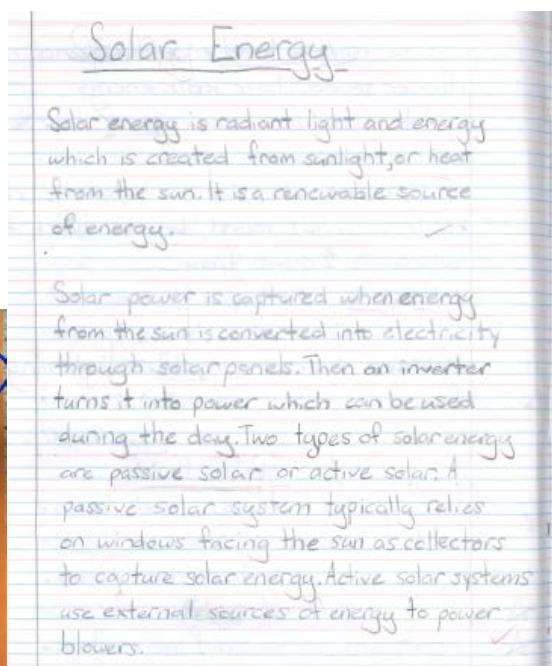 Solar Energy
Solar energy is radiant light and energy
which is created from sunlight, or heat
from the sun. It is a renewable source
of energy.
Solar power is captured when energy
from the sun is converted into electricity
through solar panels. Then an inverter
turns it into power which can be used
during the day. Two types of solar energy
are passive solar or active solar. A
passive solar system typically relies
on windows facing the sun as collectors
to capture solar energy. Active solar systems
use external sources of energy to power
blowers.